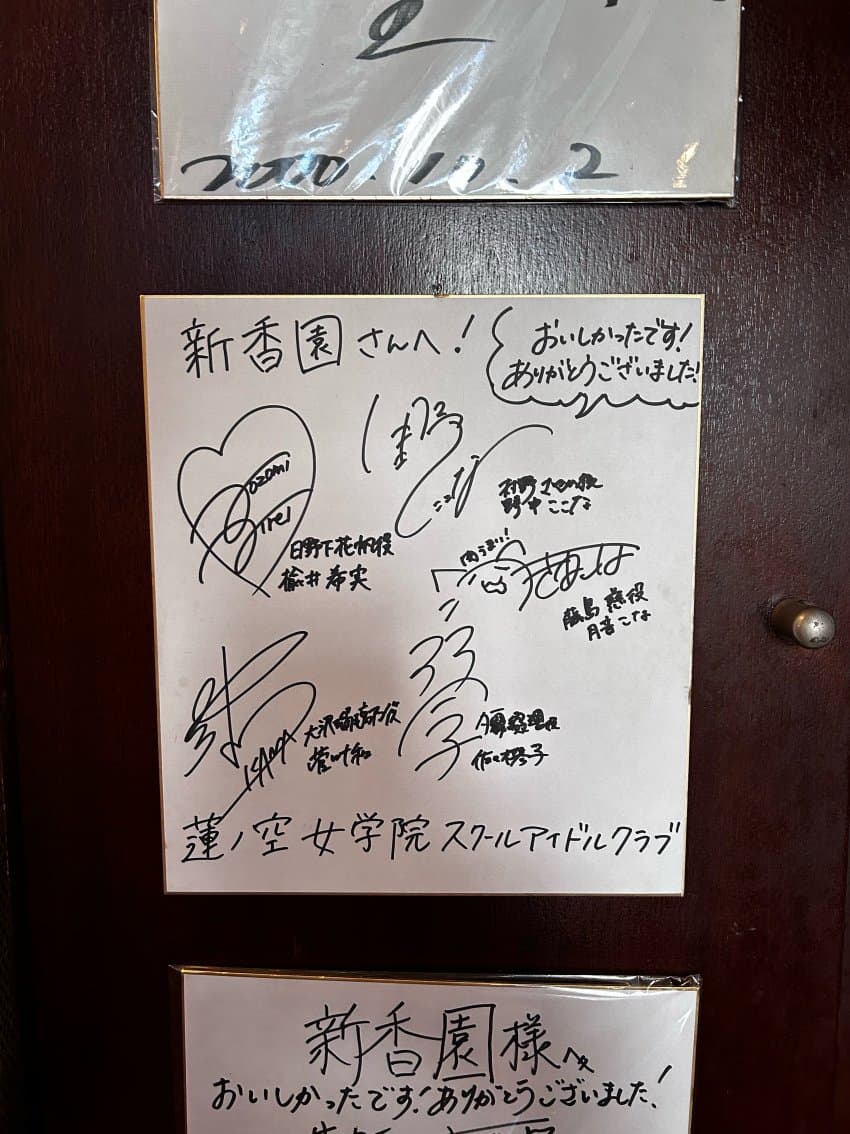 2020.12.2
新香園さんへ!
おいしかったです!
ありがとうございました!
Nozomi
Nirei
日野下花帆役
楡井希実
ここな
村野さやか役
野中ここな
肉うまい!
藤島慈役
月音こな
KANNA
大沢瑠璃乃役
菅叶和
夕霧綴理役
佐々木琴子
蓮ノ空女学院スクールアイドルクラブ
新香園様へ
おいしかったです!ありがとうございました!